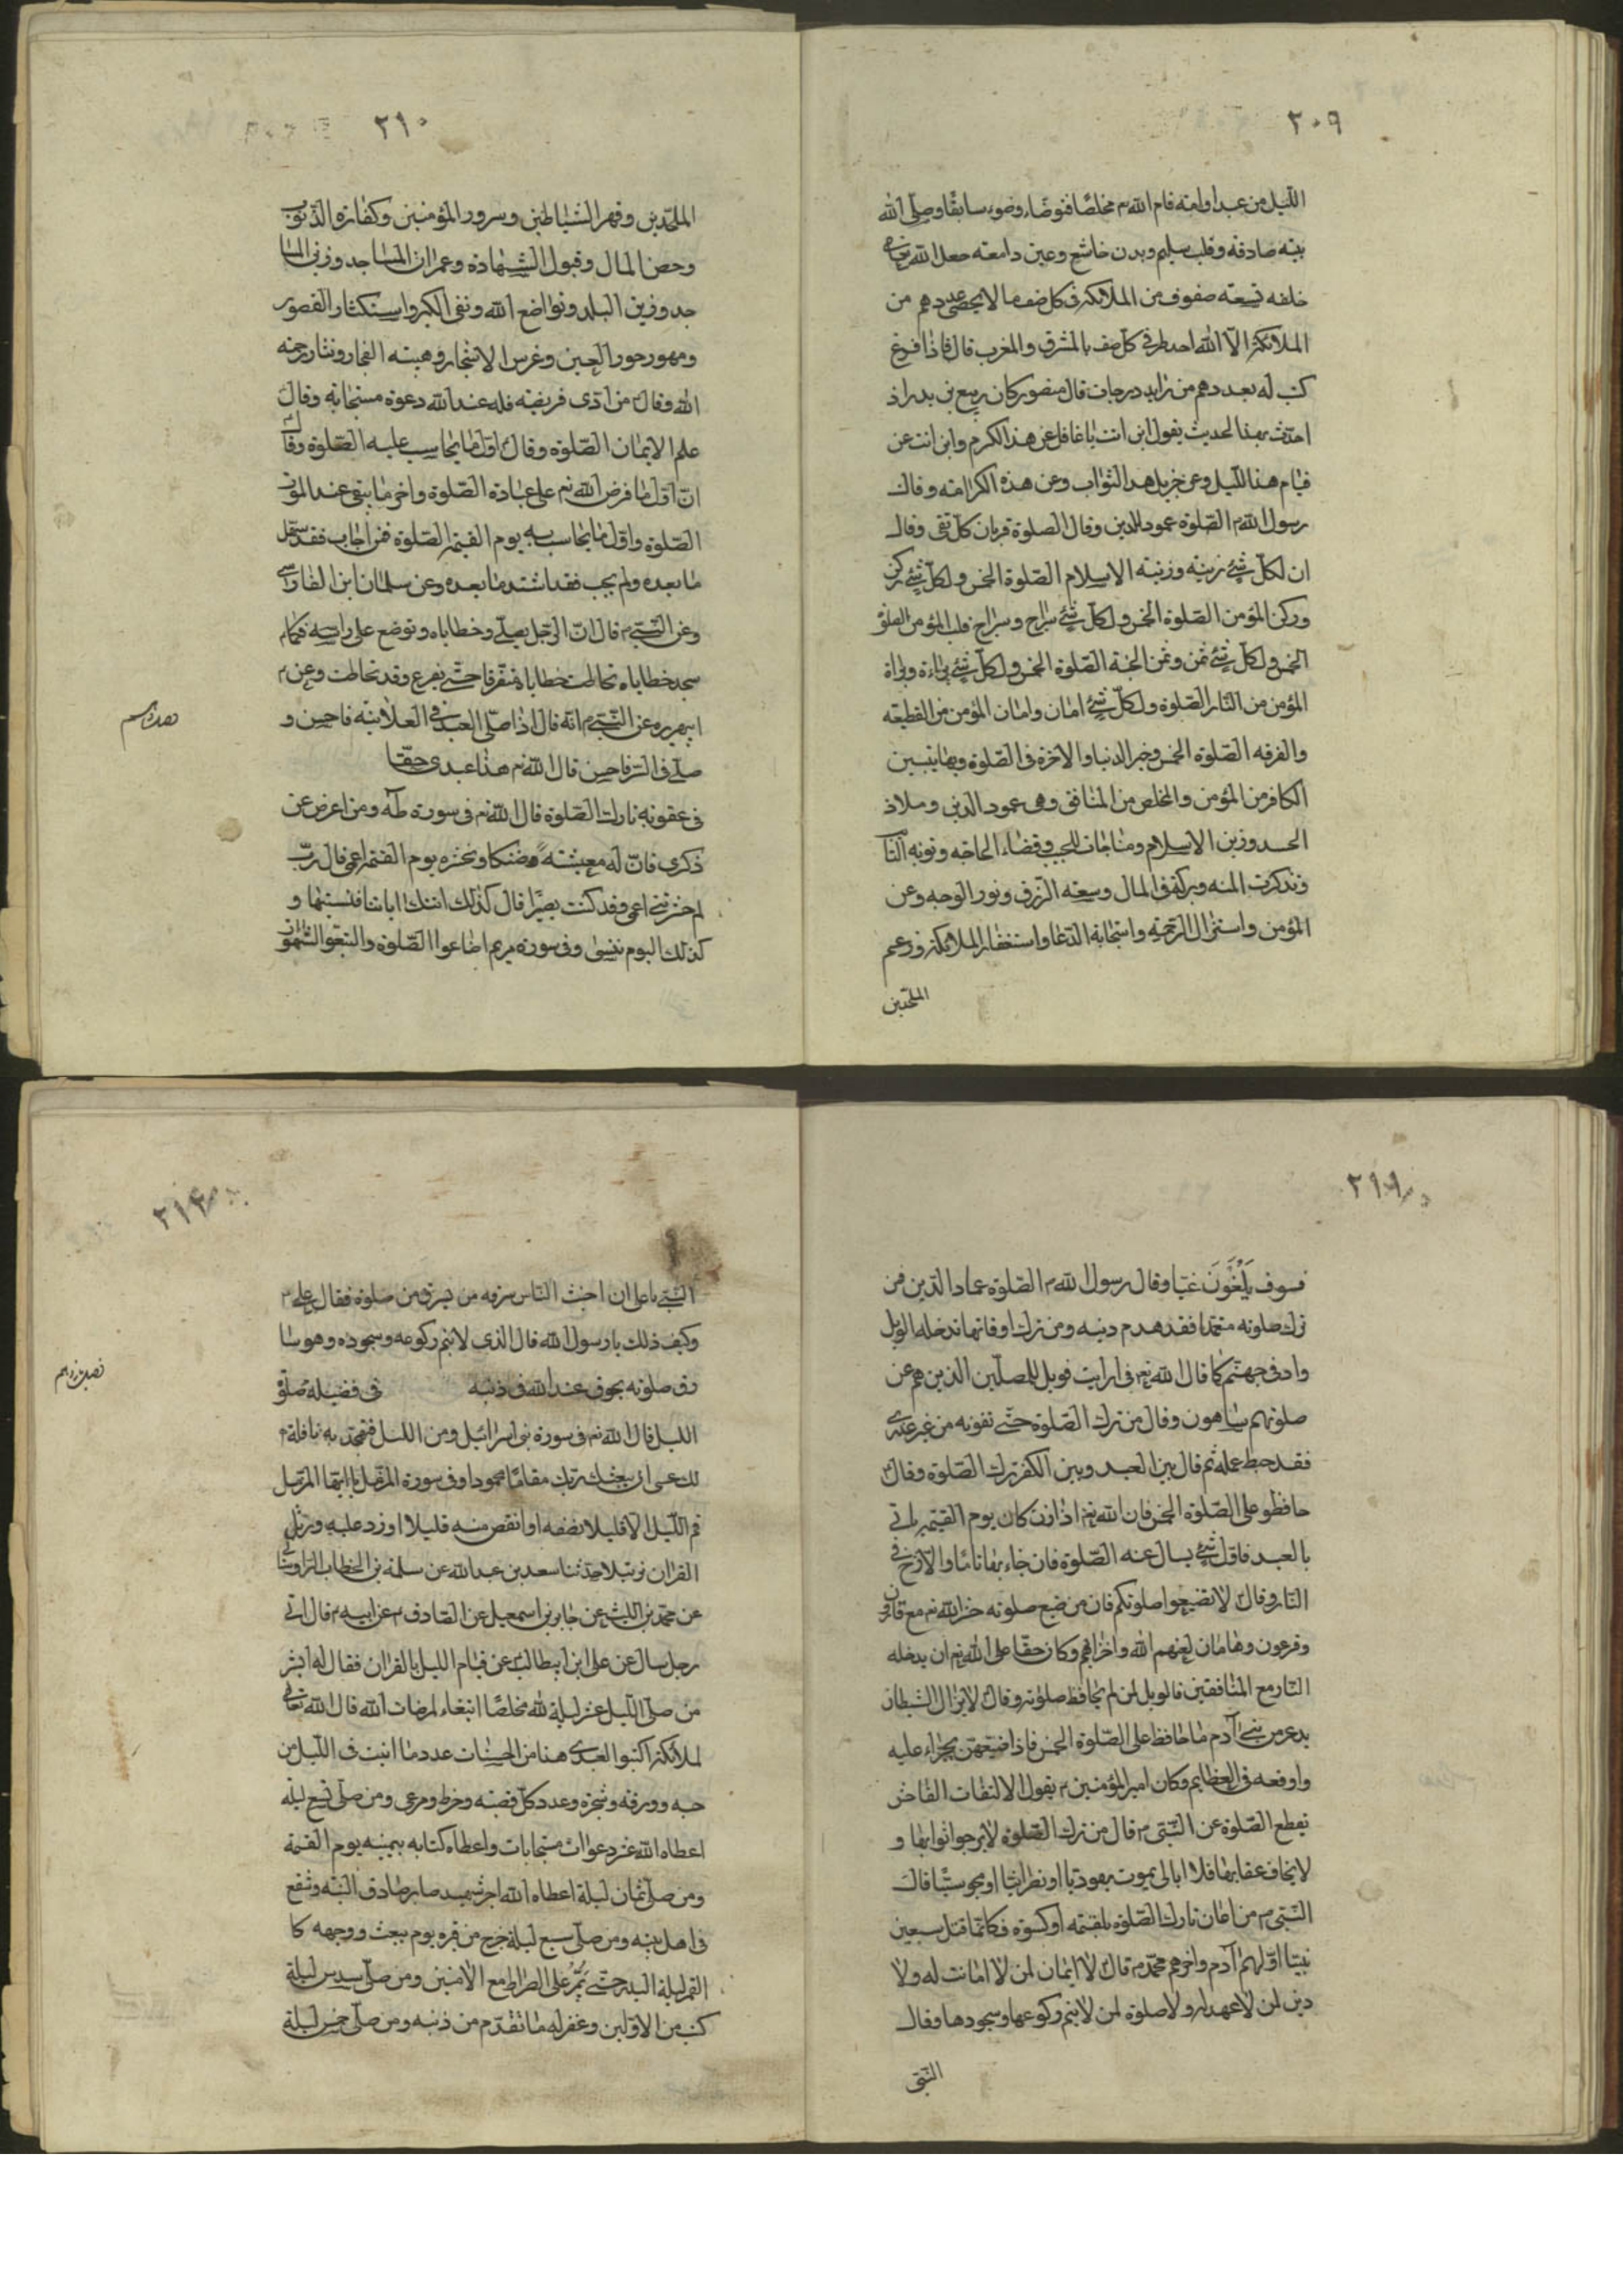 ٢٠٩
الليل من عبد او امة قام لله م مخلصًا فتوضّاء وضوء سابقًا وصلّى لله
بنية صادقه وقلب سليم وبدن خاشع وعين دامعه جعل الله تعالى
خلفه تسعته صفوف من الملائكة فى كل صف ما لا يحصى عددهم من
الملائكة الّا الله احد طرفى كلّ صف بالمشرق والمغرب قال فاذا فرغ
كتب له بعددهم من درجات قال منصور كان ربيع بن بدر اذ
احدّث بهذا الحديث يقول اين انت يا غافل عن هذا الكرم واين انت عن
قيام هذا الليل وعن جزيل هذا الثواب وعن هذه الكرامته وقال
رسول الله م الصّلوة عمود الدين وقال الصلوة قربان كلّ تقى وقال
ان لكلّ شئ زينة وزينة الاسلام الصّلوة الخمس ولكلّ شئ ركن
وركن المؤمن الصّلوة الخمس ولكلّ شئ سراج وسراج قلب المؤمن الصلوة
الخمس ولكلّ شئ ثمن وثمن الجنة الصّلوة الخمس ولكلّ شئ براءة وبراة
المؤمن من النّار الصّلوة ولكلّ شئ امان وامان المؤمن من القطيعه
والفرقه الصّلوة الخمس وخير الدنيا والاخرة فى الصّلوة وبها يتبين
الكافر من المؤمن والمخلص من المنافق وهى عمود الدين وملاذ
الجسد وزين الاسلام ومناجات الحبيب وقضاء الحاجه وتوبة التائب
وتذكرت المنه وبركة فى المال وسعة الرّزق ونور الوجه وعن
المؤمن واستنزال الرّحمة واستجابة الدّعا واستغفار الملائكة ورغم
الملحدين
٢١٠
الملحدين وقهر الشياطين وسرور المؤمنين وكفارة الذنوب
وحصن المال وقبول الشهادة وعمران المساجد وزين المسا
جد وزين البلد وتواضع لله ونفى الكبر واستكثار القصور
ومهور حور العين وغرس الاشجار وهيبة الفجار ونثار رحمة
الله وقال من ادّى فريضة فله عند الله دعوة مستجابة وقال
علم الايمان الصّلوة وقال اوّل ما يحاسب عليه الصّلوة وقال
انّ اوّل ما فرض الله م على عباده الصّلوة واخر ما يبقى عند الموت
الصّلوة واوّل ما يحاسب به يوم القيمة الصّلوة فمن اجاب فقد سهّل
ما بعده ولم يجب فقد اشتد ما بعده وعن سلمان ابن الفارسى
وعن النّبى م قال انّ الرّجل يصلّى وخطاياه توضع على راسه فكلّما
سجد خطاياه تحاطت خطاياه متفرقا حتّى يفرغ وقد تحاطت وعن م
ابيهريره عن النّبى م انّه قال اذا صلّى العبد فى العلانية فاحسن و
صلّى فى السّر فاحسن قال الله م هذا عبدى حقّا
فى عقوبة تارك الصّلوة قال الله م فى سورة طه ومن اعرض عن
ذكرى فانّ له معيشة ضنكا ونحشره يوم القيمة اعمى قال ربّ
لم حشرتنى اعمى وقد كنت بصيرًا قال كذلك اتتك اياتنا فنسيتها و
كذلك اليوم تنسى وفى سورة مريم اضاعوا الصّلوة واتبعوا الشهوات
٢١١
فسوف يَلْقَوْنَ غيّا وقال رسول الله م الصّلوة عماد الدّين فمن
ترك صلوته متعمّدا فقد هدم دينه ومن ترك اوقاتها تدخله الويل
واد فى جهنّم كما قال الله تع فى ارايت فويل للمصلّين الذين هم عن
صلوتهم ساهون وقال من ترك الصّلوة حتّى تفوته من غير عذر
فقد حبط عمله ثم قال بين العبد وبين الكفر ترك الصّلوة وقال
حافظوا على الصّلوة الخمس فان الله تع اذا كان يوم القيمة ياتى
بالعبد فاوّل شئ يسال عنه الصّلوة فان جاء بها تامّا والّا زخّ فى
النّار وقال لا تضيعوا صلوتكم فان من ضيع صلوته حشره الله م مع قارون
وفرعون وهامان لعنهم الله واخزاهم وكان حقّا على الله م ان يدخله
النّار مع المنافقين فالويل لمن لم يحافظ صلوته وقال لا يزال الشيطان
يرعب من بنى آدم ما حافظ على الصّلوة الخمس فاذا ضيّعهن تجراء عليه
واوقعه فى العظائم وكان امير المؤمنين م يقول الالتفات الفاحش
يقطع الصّلوة عن النّبى م قال من ترك الصّلوة لا يرجوا ثوابها و
لا يخاف عقابها فلا ابالى يموت يهوديّا او نصرانيّا او مجوسيّا قال
النّبى م من اعان تارك الصّلوة بلقمة او كسوة فكانّما قتل سبعين
نبيّا اوّلهم آدم واخرهم محمّد م قال لا ايمان لمن لا امانت له ولا
دين لمن لا عهد له ولا صلوة لمن لا يتم ركوعها وسجودها وقال
النّبى
٢١٢
النّبى يا على ان اخبث النّاس سرقة من يسرق من صلوة فقال على م
وكيف ذلك يا رسول الله قال الذى لا يتم ركوعه وسجوده وهو سا
رق صلوته ممحوق عند الله فى دينه فى فضيلة صلوة
الليل قال الله م فى سورة بنى اسرائيل ومن الليل فتهجّد به نافلة م
لك عسى ان يبعثك ربّك مقامًا محمودا وفى سورة المزمّل يا ايّها المزمّل
قم اللّيل الّا قليلا نصفه او انقص منه قليلا او زد عليه ورتّل
القران ترتيلا حدّثنا سعد بن عبد الله عن سلمة بن الخطاب
عن محمّد بن الليث عن جابر بن اسمعيل عن الصّادق م عن ابيه م قال اتى
رجل سال عن على ابن ابيطالب عن قيام الليل بالقران فقال له ابشر
من صلّى الليل عشر ليلة لله مخلصًا ابتغاء لمرضات الله قال الله تعالى
لملائكته اكتبوا لعبدى هذا من الحسنات عدد ما انبت فى اللّيل من
حبه وورقه وشجره وعدد كلّ قصبه وخوط ومرعى ومن صلّى تسع ليلة
اعطاه الله عشر دعوات مستجابات واعطاه كتابه بيمينه يوم القيمة
ومن صلّى ثمان ليلة اعطاه الله اجر شهيد صابر صادق النّيه وشفع
فى اهل بيته ومن صلّى سبع ليلة خرج من قبره يوم يبعث ووجهه كا
القمر ليلة البدر حتّى يَمُرُّ على الصّراط مع الآمنين ومن صلّى سدس ليلة
كتب من الاوّلين وغفر له ما تقدّم من ذنبه ومن صلّى خمس ليلة